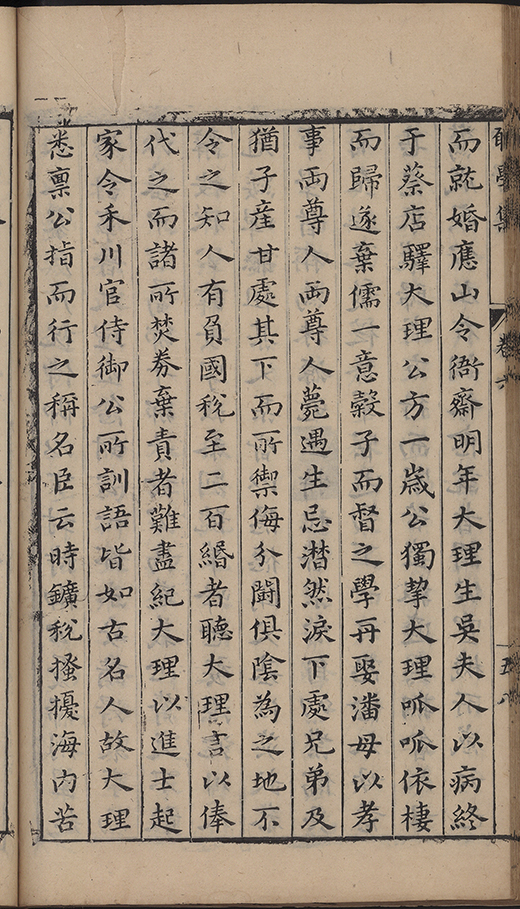 集
卷六
五八
而就婚應山令衙齋明年大理生吳夫人以病終
于蔡店驛大理公方一歲公獨挈大理呱呱依棲
而歸遂棄儒一意穀子而督之學再娶潘母以孝
事両尊人両尊人薨遇生忌潸然淚下處兄弟及
猶子産甘處其下而所禦侮分鬪俱陰為之地不
令之知人有負國稅至二百緡者聽大理言以俸
代之而諸所焚券棄責者難盡紀大理以進士起
家令禾川官侍御公所訓語皆如古名人故大理
悉禀公指而行之稱名臣云時鑛稅搔擾海内苦